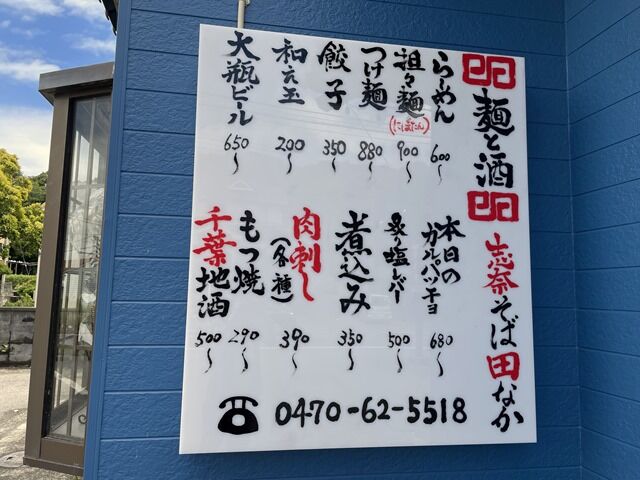 麺と酒
志奈そば田なか
らーめん
600〜
担々麺
(にぼたん)
900〜
つけ麺
880〜
餃子
350〜
和え玉
200〜
大瓶ビール
650〜
本日のカルパッチョ
680〜
炙り塩レバー
500〜
煮込み
350〜
肉刺し
(各種)
390〜
もつ焼
290〜
千葉地酒
500〜
0470-62-5518